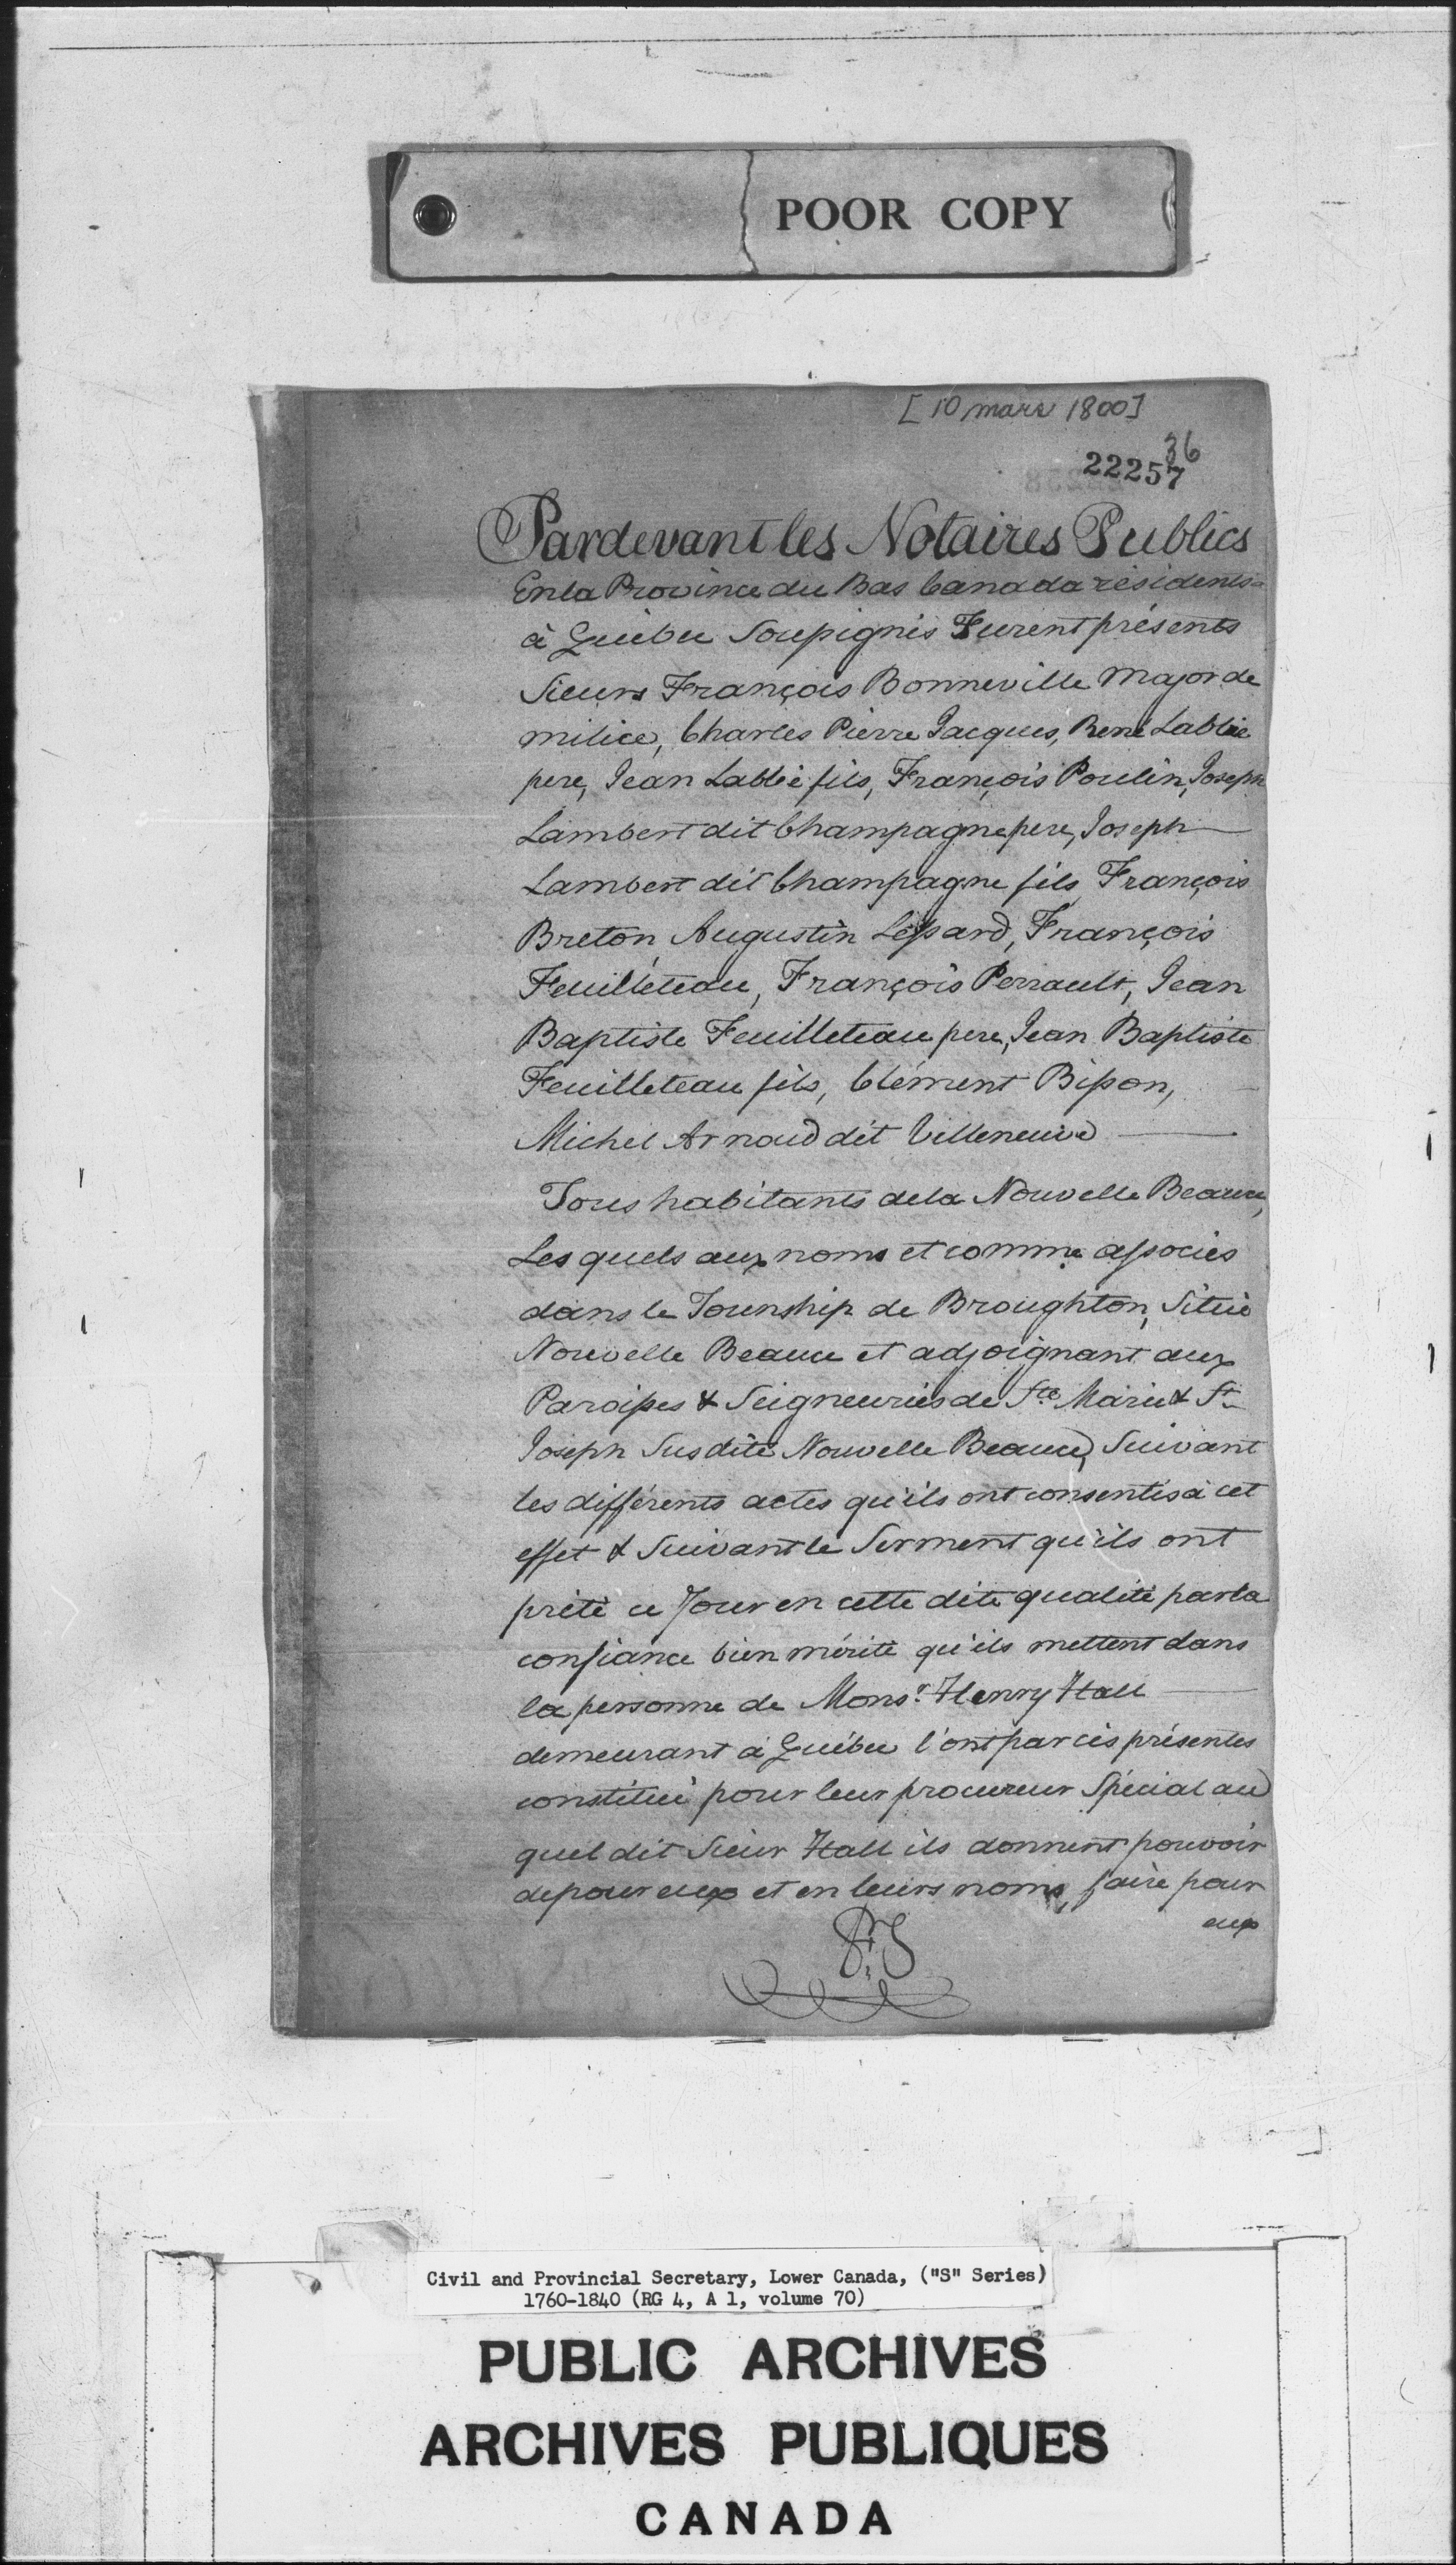 POOR COPY
[10 mars 1800]
36
22257
Pardevant les Notaires Publics
En la Province du Bas Canada résidents
à Québec Soussignés Furent présents
Sieurs François Bonneville Major de
milice, Charles Pierre Jacques, René Lablie
pere, Jean Lablie fils, François Poulin, Joseph
Lambert dit Champagne pere, Joseph
Lambert dit Champagne fils, François
Breton, Augustin Lessard, François
Feuilleteau, François Perrault, Jean
Baptiste Feuilleteau pere, Jean Baptiste
Feuilleteau fils, Clément Bisson,
Michel Arnaud dit Villeneuve
Tous habitants de la Nouvelle Beauce,
Les quels aux noms et comme associés
dans le Township de Broughton, Situé
Nouvelle Beauce et adjoignant aux
Paroisses & Seigneuries de Ste. Marie & St.
Joseph Susdite Nouvelle Beauce, Suivant
les différents actes qu'ils ont consentis à cet
effet & Suivant le Serment qu'ils ont
prêté ce Jour en cette dite qualité par la
confiance bien mérité qu'ils mettent dans
la personne de Monsr. Henry Hall
demeurant à Québec l'ont par ces présentes
constitué pour leur procureur Spécial au
quel dit Sieur Hall ils donnent pouvoir
de pour eux et en leurs noms, faire pour
eux
Civil and Provincial Secretary, Lower Canada, ("S" Series)
1760-1840 (RG 4, A 1, volume 70)
PUBLIC ARCHIVES
ARCHIVES PUBLIQUES
CANADA